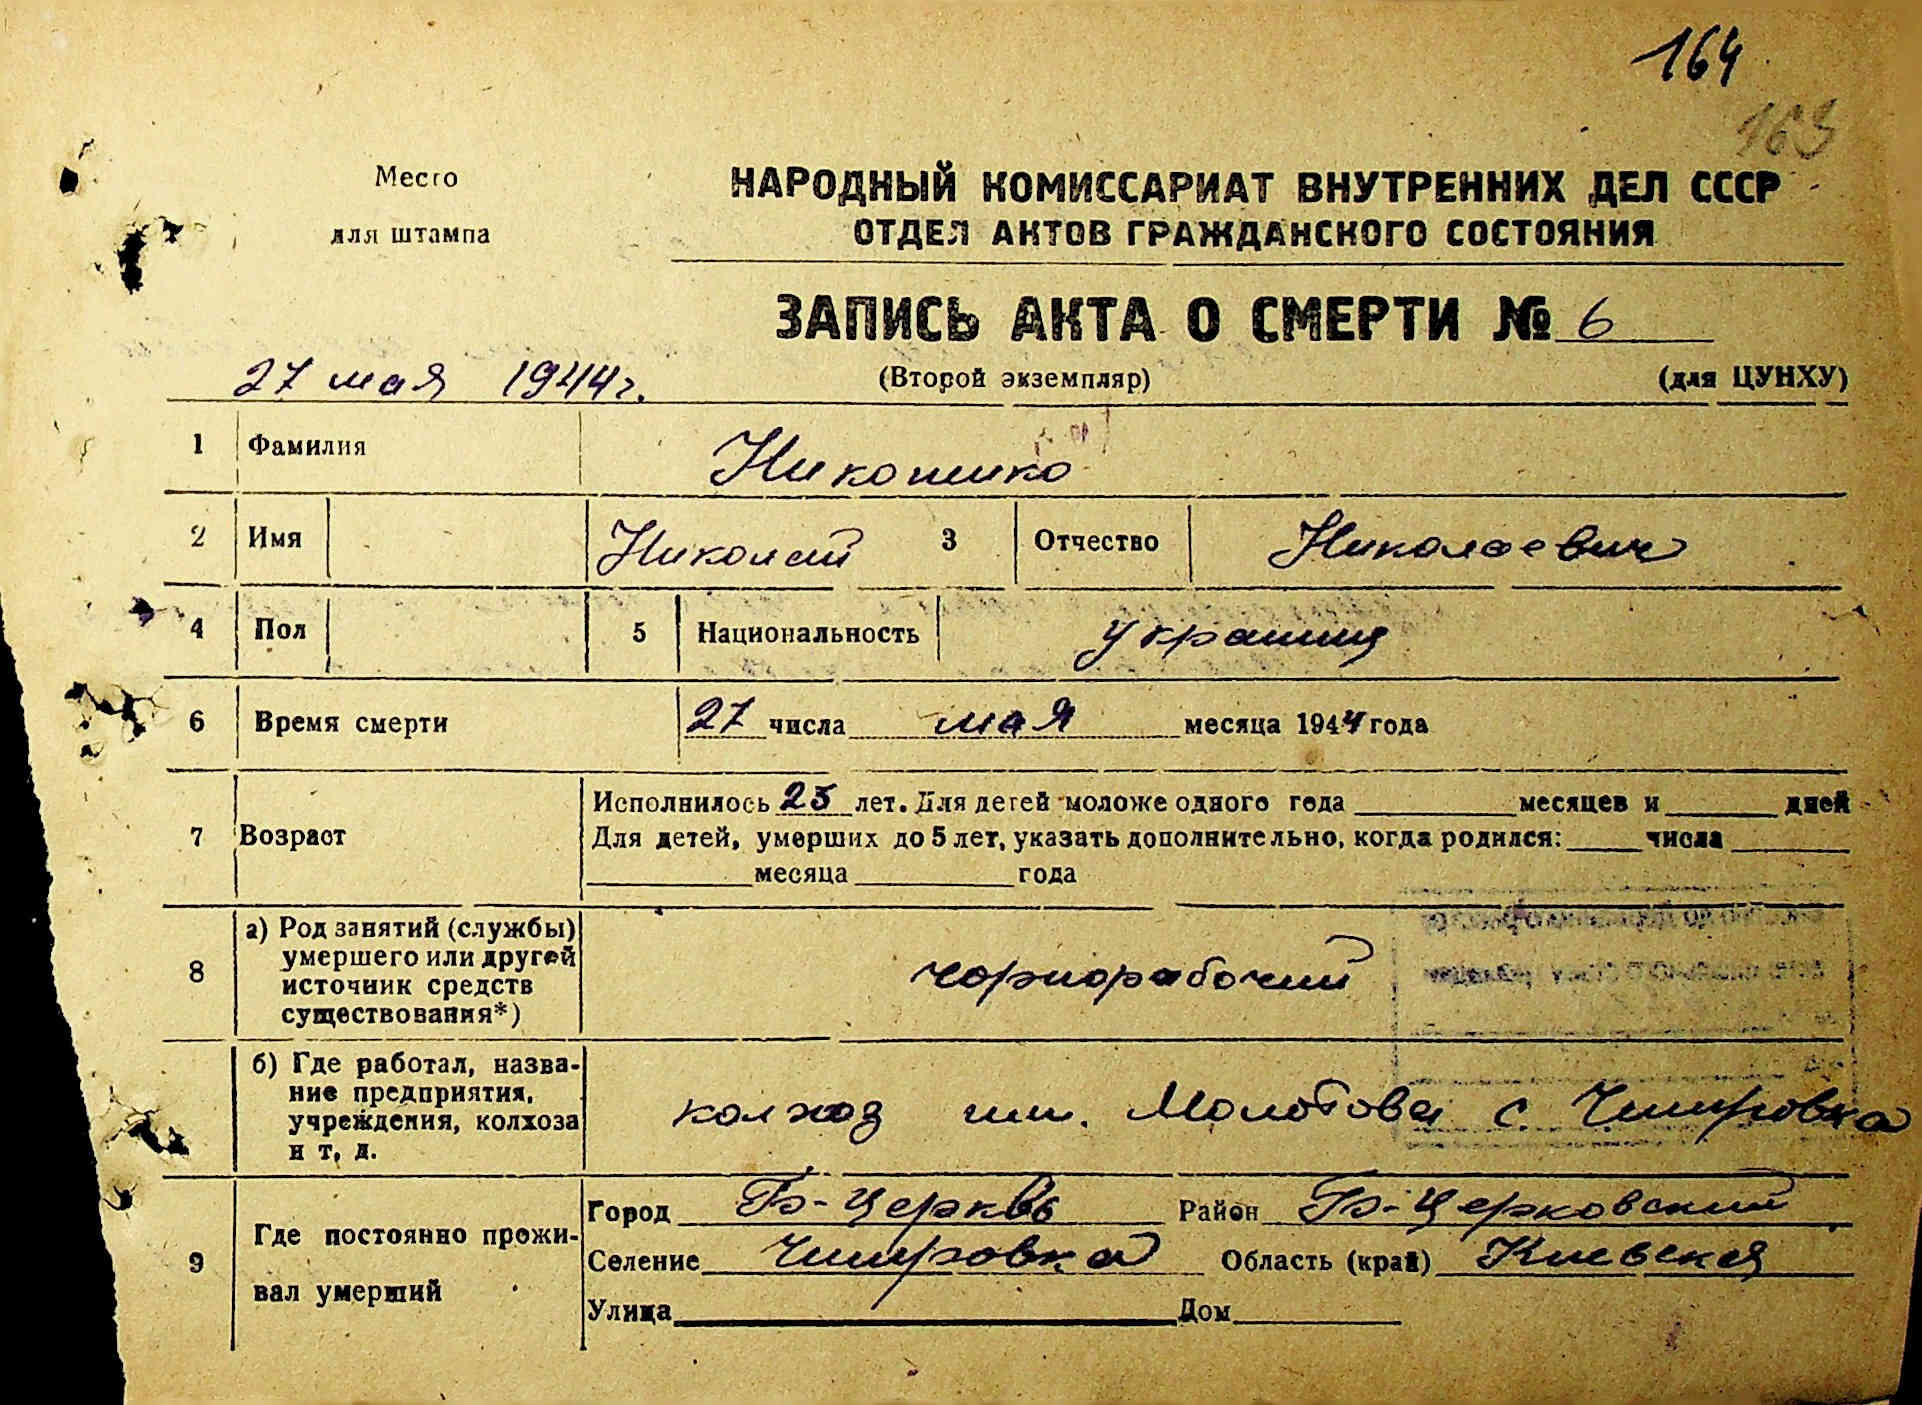 164
163
Место
для штампа
НАРОДНЫЙ КОМИССАРИАТ ВНУТРЕННИХ ДЕЛ СССР
ОТДЕЛ АКТОВ ГРАЖДАНСКОГО СОСТОЯНИЯ
ЗАПИСЬ АКТА О СМЕРТИ № 6
27 мая 1944 г. (Второй экземпляр) (для ЦУНХУ)
1 Фамилия Никошико
2 Имя Николай 3 Отчество Николаевич
4 Пол 5 Национальность украинц
6 Время смерти 27 числа мая месяца 1944 года
7 Возраст
Исполнилось 25 лет. Для детей моложе одного года месяцев и дней
Для детей, умерших до 5 лет, указать дополнительно, когда родился: числа
месяца года
8 а) Род занятий (службы)
умершего или другой
источник средств
существования*)
чорнорабочий
б) Где работал, назва-
ние предприятия,
учреждения, колхоза
и т. д.
колхоз им. Молотова с. Чмировка
9 Где постоянно прожи-
вал умерший
Город Б-Церковь Район Б-Церковский
Селение Чмировка Область (край) Киевская
Улица Дом